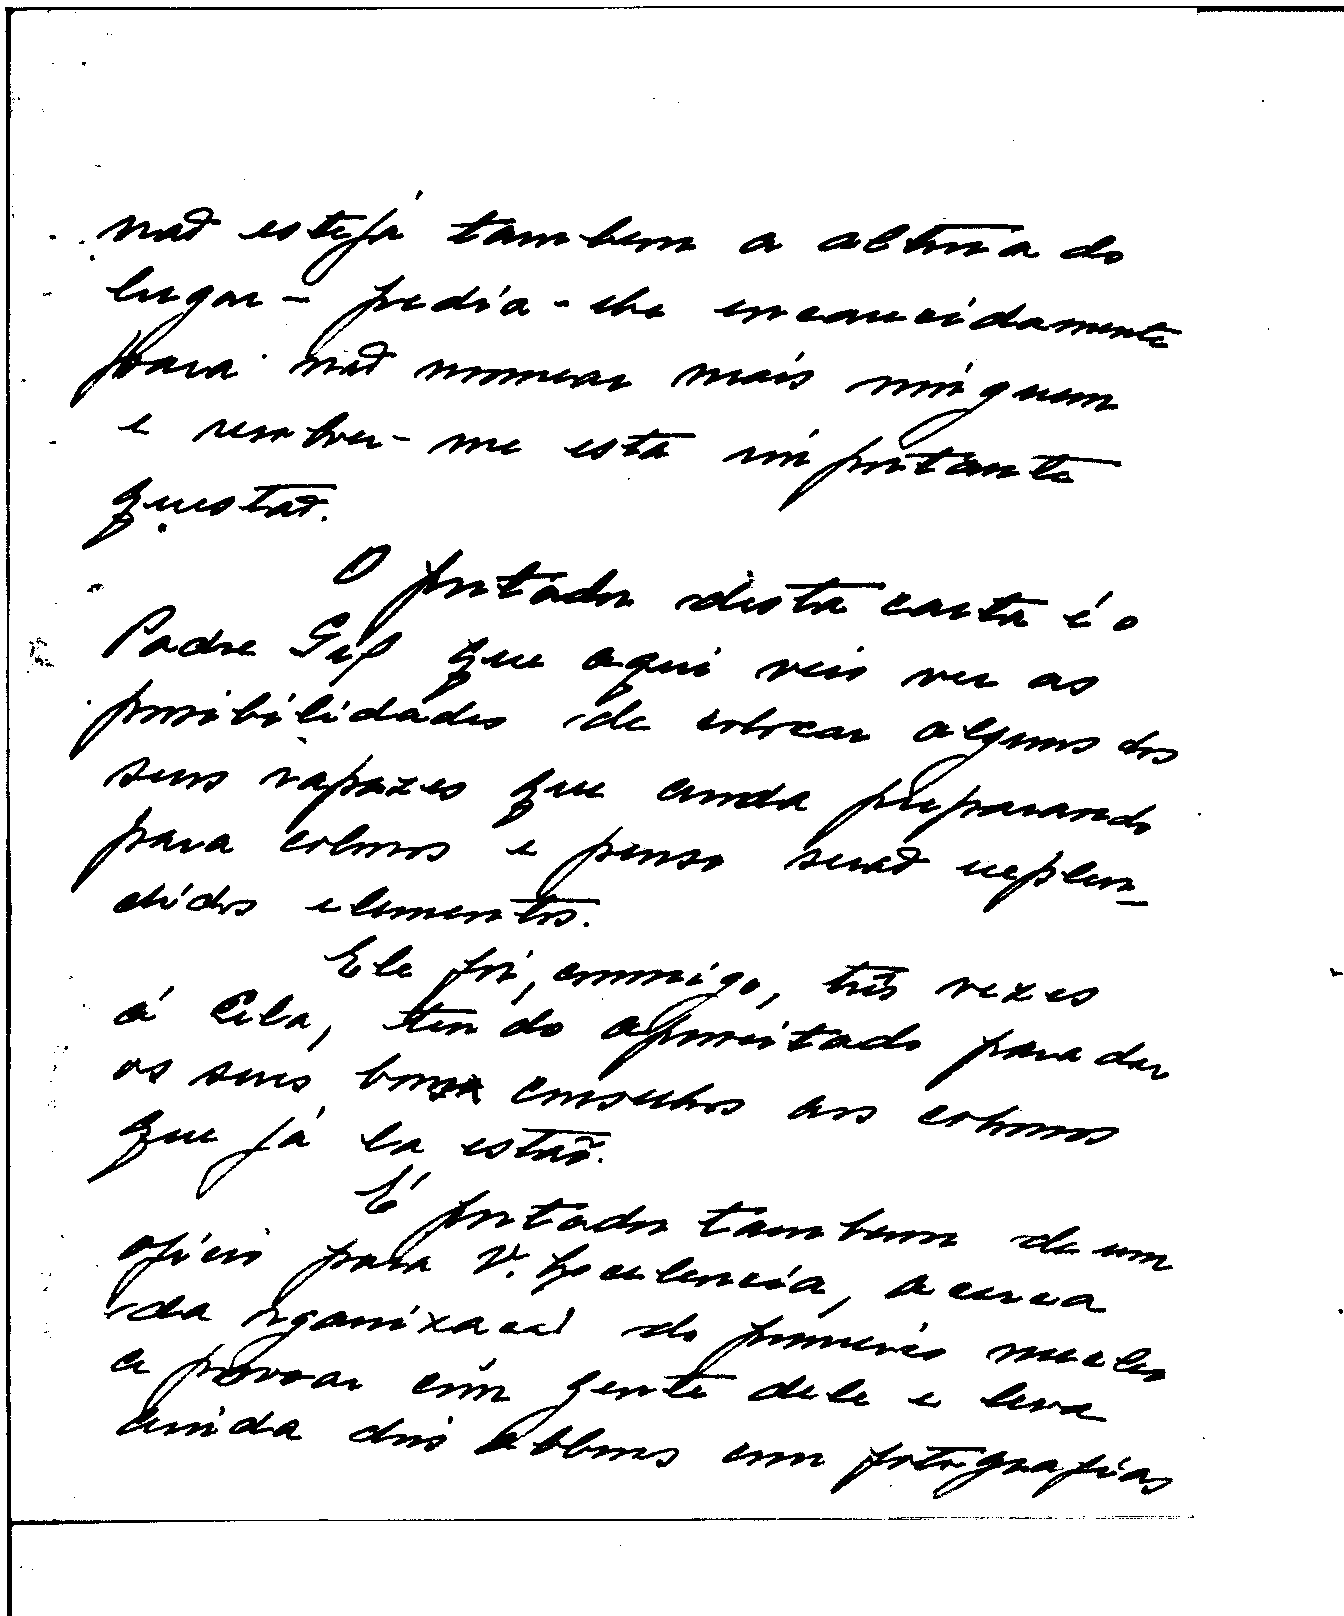 não estejá tambem a altura do
lugar - pedia-lhe encarecidamente
para não nomear mais ninguem
e resolver-me esta importante
questão.
O portador desta carta é o
Padre que aqui veio ver as
possibilidades de colocar alguns dos
seus rapazes que anda preparando
para colonos e penso serão explen-
didos elementos.
Ele foi, commigo, três vezes
á Cela, tendo aproveitado para dar
os seus bons conselhos aos colonos
que já la estão.
É portador tambem de um
oficio para V. Excelencia, acerca
da organização do primeiro nucleo
a povoar com gente dele e leva
ainda dois albuns com fotografias